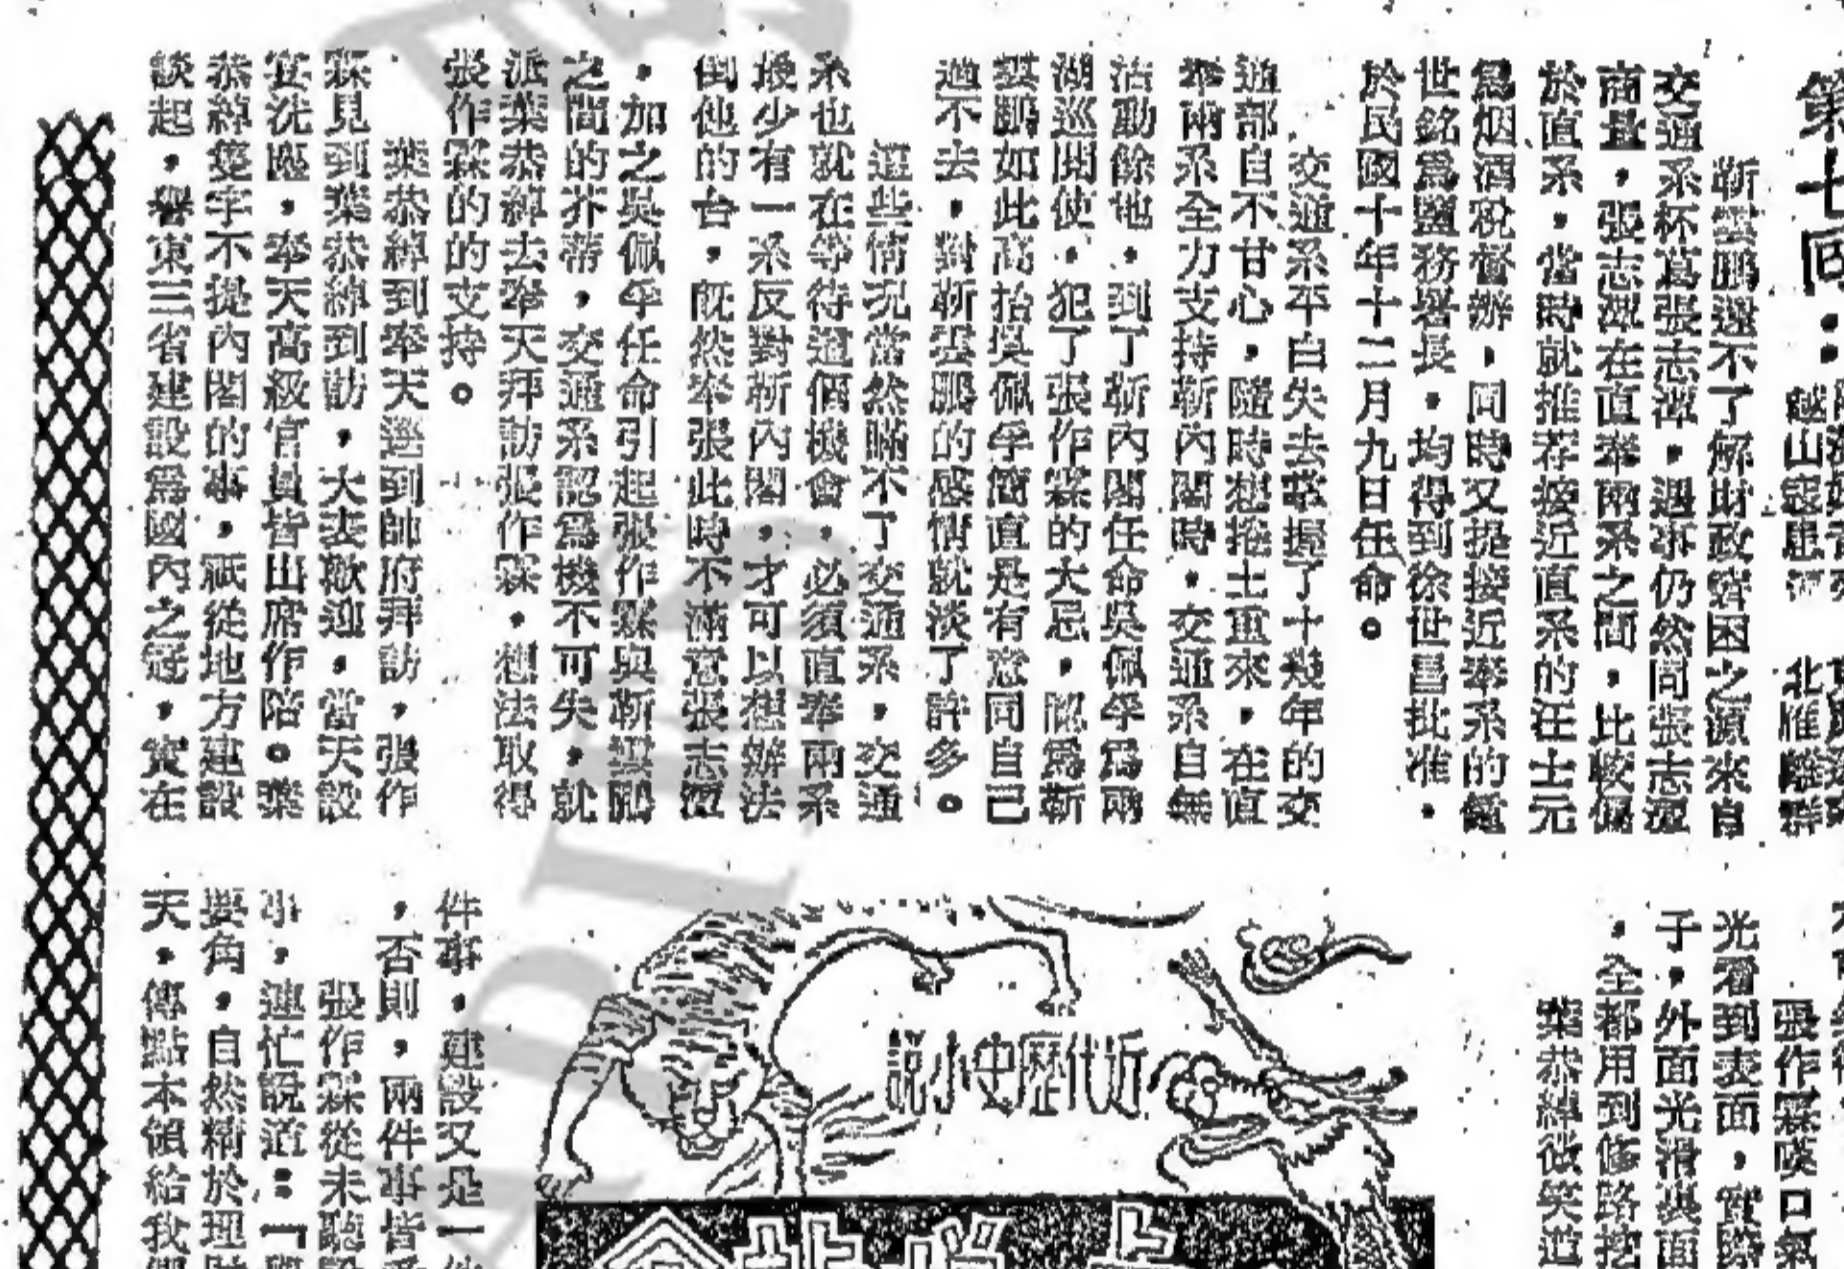 第七回：
越山寇患　北雁離群
靳雲鵬還不了解財政窘困之源來自
交通系杯葛張志潭，遇事仍然同張志潭
商量，張志潭在直奉兩系之間，比較偏
於直系，當時就推荐接近直系的汪士元
爲烟酒稅督辦，同時又提接近奉系的鍾
世銘爲鹽務署長，均得到徐世昌批准，
於民國十年十二月九日任命。
交通系平白失去掌握了十幾年的交
通部自不甘心，隨時想捲土重來，在直
奉兩系全力支持靳內閣時，交通系自無
活動餘地，到了靳內閣任命吳佩孚爲兩
湖巡閱使，犯了張作霖的大忌，認爲靳
雲鵬如此高抬吳佩孚簡直是有意同自己
過不去，對靳雲鵬的感情就淡了許多。
這些情況當然瞞不了交通系，交通
系也就在等待這個機會，必須直奉兩系
最少有一系反對靳內閣，才可以想辦法
倒他的台，既然奉張此時不滿意張志潭
，加之吳佩孚任命引起張作霖與靳雲鵬
之間的芥蒂，交通系認爲機不可失，就
派葉恭綽去奉天拜訪張作霖，想法取得
張作霖的的支持。
葉恭綽到奉天逕到帥府拜訪，張作
霖見到葉恭綽到訪，大表歡迎，當天設
宴洗塵，奉天高級官員皆出席作陪。葉
恭綽隻字不提內閣的事，祇從地方建設
談起，譽東三省建設爲國內之冠，實在
張作霖嘆口氣
光看到表面，實際
子，外面光滑裏面
，全都用到修路挖
葉恭綽微笑道
近代歷史小說
件事，建設又是一
，否則，兩件事皆
張作霖從未聽
事，連忙說道：「
要角，自然精於理財
天，傳點本領給我